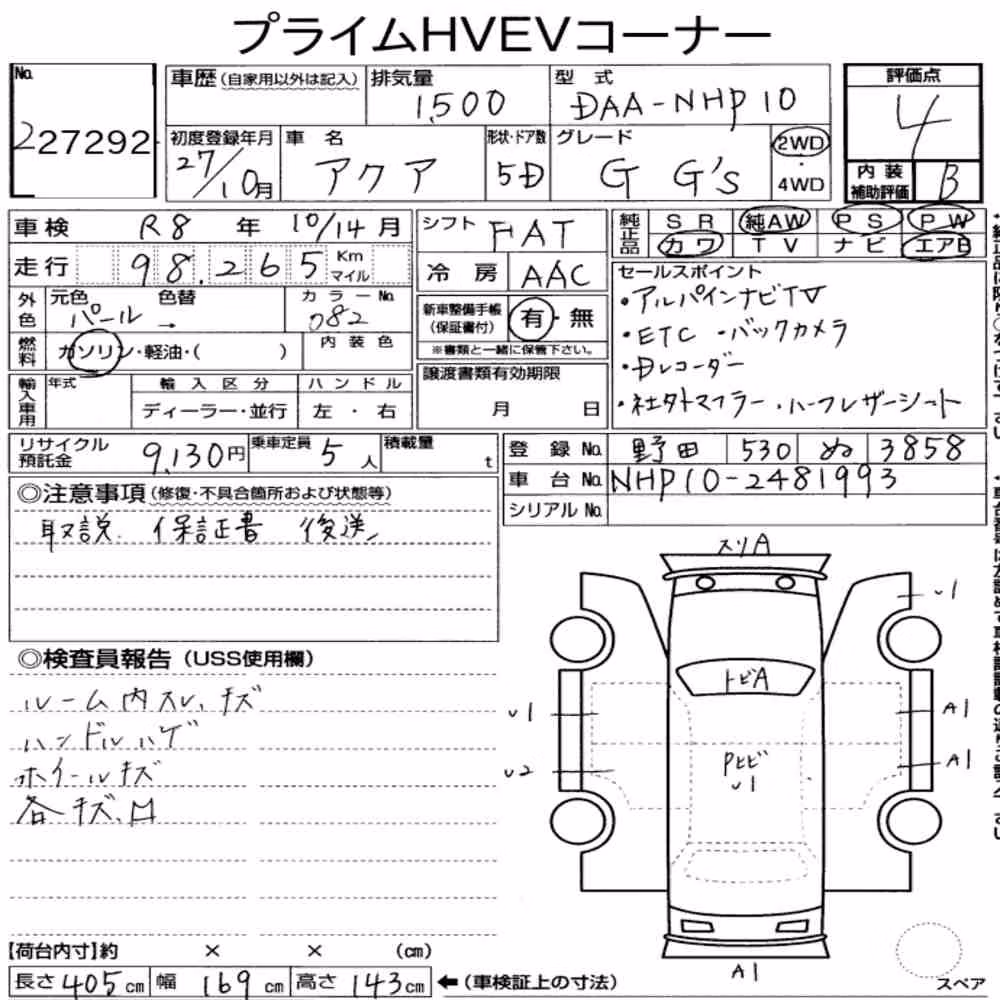 プライムHVEVコーナー
No.
227292
車歴(自家用以外は記入)
排気量
1,500
型式
DAA-NHP10
評価点
4
初度登録年月
27/10月
車名
アクア
形状・ドア数
5D
グレード
G G's
2WD
・
4WD
内装
補助評価
B
車検 R8 年 10/14 月
シフト FAT
純正品
SR 純AW PS PW
カワ TV ナビ エアB
走行 98,265 Km
マイル
冷房 AAC
セールスポイント
・アルパインナビTV
・ETC ・バックカメラ
・Dレコーダー
・社外マフラー ・ハーフレザーシート
外色
元色 色替
パール →
カラーNo.
082
新車整備手帳
(保証書付)
有・無
※書類と一緒に保管下さい。
燃料
ガソリン・軽油・( )
内装色
譲渡書類有効期限
月 日
輸入車用
年式
輸入区分
ハンドル
ディーラー・並行
左・右
リサイクル
預託金
9,130円
乗車定員 5人
積載量 t
登録No. 野田 530 ぬ 3858
車台No. NHP10-2481993
シリアルNo.
◎注意事項(修復・不具合箇所および状態等)
取説 保証書 後送
◎検査員報告(USS使用欄)
ルーム内スレ、キズ
ハンドルハゲ
ホイールキズ
各キズ、凹
スリA
U1
トビA
U1
A1
PヒビU1
U2
A1
A1
スペア
【荷台内寸】約 × × (cm)
長さ405cm 幅169cm 高さ143cm ←(車検証上の寸法)